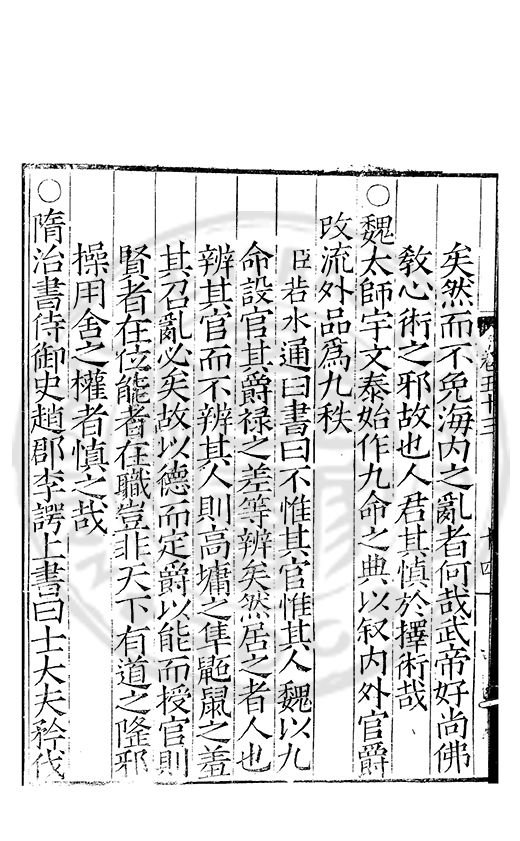 矣然而不免海内之亂者何哉武帝好尚佛
教心術之邪故也人君其慎於擇術哉
○魏太師宇文泰始作九命之典以叙内外官爵
改流外品爲九秩
臣若水通曰書曰不惟其官惟其人魏以九
命設官其爵禄之差等辨矣然居之者人也
辨其官而不辨其人則高墉之隼鼫鼠之羞
其召亂必矣故以德而定爵以能而授官則
賢者在位能者在職豈非天下有道之隆邪
操用舍之權者慎之哉
○隋治書侍御史趙郡李諤上書曰士大夫矜伐
卷五十三
十四